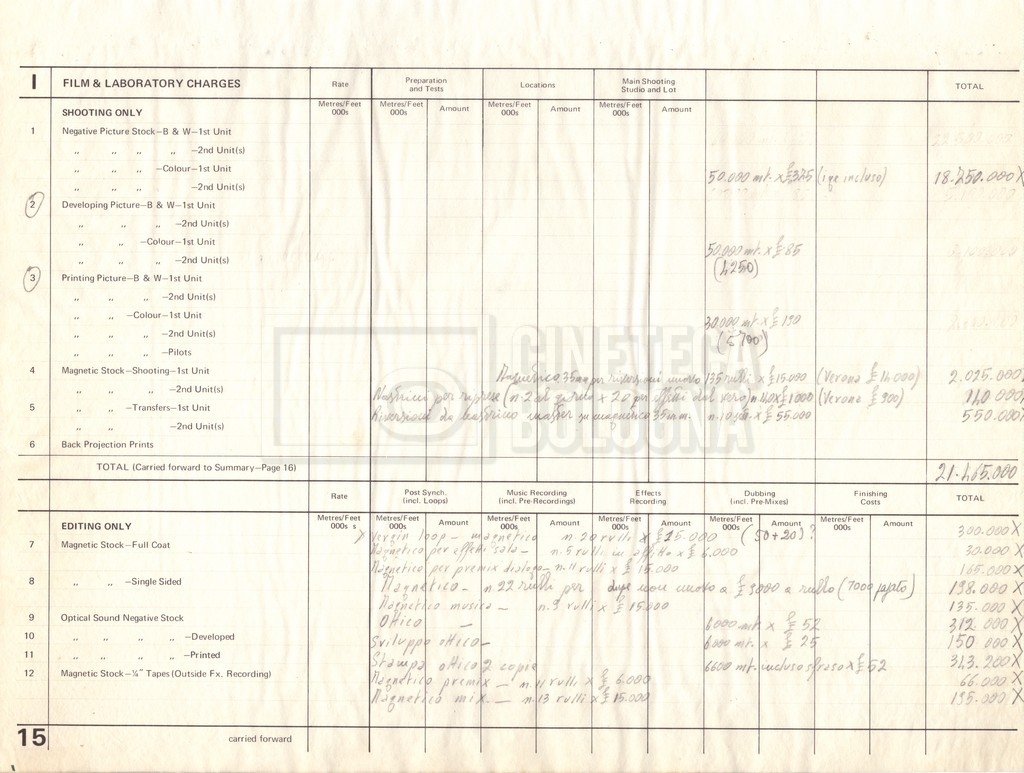 I FILM & LABORATORY CHARGES Rate Preparation and Tests Locations Main Shooting Studio and Lot TOTAL
SHOOTING ONLY Metres/Feet 000s Metres/Feet 000s Amount Metres/Feet 000s Amount Metres/Feet 000s Amount
1 Negative Picture Stock—B & W—1st Unit
,, ,, ,, ,, —2nd Unit(s)
,, ,, ,, —Colour—1st Unit
,, ,, ,, —2nd Unit(s) 50.000 mt. x £ (ige incluso) 18.250.000 X
2 Developing Picture—B & W—1st Unit
,, ,, ,, —2nd Unit(s)
,, ,, —Colour—1st Unit
,, ,, ,, —2nd Unit(s) 50.000 mt. x £ 85
(4250)
3 Printing Picture—B & W—1st Unit
,, ,, ,, —2nd Unit(s)
,, ,, —Colour—1st Unit 30.000 mt. x £ 190
,, ,, ,, —2nd Unit(s) (5700)
,, ,, ,, —Pilots
4 Magnetic Stock—Shooting—1st Unit Magnetico 35mm per riversioni nuovo 135 rulli x £ 15.000 (Verona £ 14.000) 2.025.000
,, ,, ,, —2nd Unit(s) Nastrini per riprese (n. 20 per effetti dal vero) n. 140 x £ 1000 (Verona £ 900) 140 000
5 ,, ,, —Transfers—1st Unit Riversioni da nastrino master su magnetico 35mm. n. 10 x £ 55.000 550.000
,, ,, —2nd Unit(s)
6 Back Projection Prints
TOTAL (Carried forward to Summary—Page 16) 21.465.000
Rate Post Synch. (incl. Loops) Music Recording (incl. Pre-Recordings) Effects Recording Dubbing (incl. Pre-Mixes) Finishing Costs TOTAL
EDITING ONLY Metres/Feet 000s s Metres/Feet 000s Amount Metres/Feet 000s Amount Metres/Feet 000s Amount Metres/Feet 000s Amount Metres/Feet 000s Amount
7 Magnetic Stock—Full Coat X Vergin loop — magnetico n. 20 rulli x £ 15.000 (50+20)? 300.000 X
Magnetico per effetti sala — n. 5 rulli in affitto x £ 6.000 30.000 X
Magnetico per premix dialogo — n. 11 rulli x £ 15.000 165.000 X
8 ,, ,, —Single Sided Magnetico — n. 22 rulli per dupe nuovo a £ 9000 a rullo (7000) 198.000 X
Magnetico musica — n. 9 rulli x £ 15.000 135.000 X
9 Optical Sound Negative Stock Ottico — 6000 mt. x £ 52 312 000 X
10 ,, ,, ,, ,, —Developed Sviluppo ottico — 6000 mt. x £ 25 150 000 X
11 ,, ,, ,, ,, —Printed Stampa ottico 2 copie 6600 mt. incluso x £ 52 343.200 X
12 Magnetic Stock—¼" Tapes (Outside Fx. Recording) Magnetico premix — n. 11 rulli x £ 6.000 66.000 X
Magnetico mix. — n. 13 rulli x £ 15.000 195.000 X
15 carried forward
CINETECA
BOLOGNA